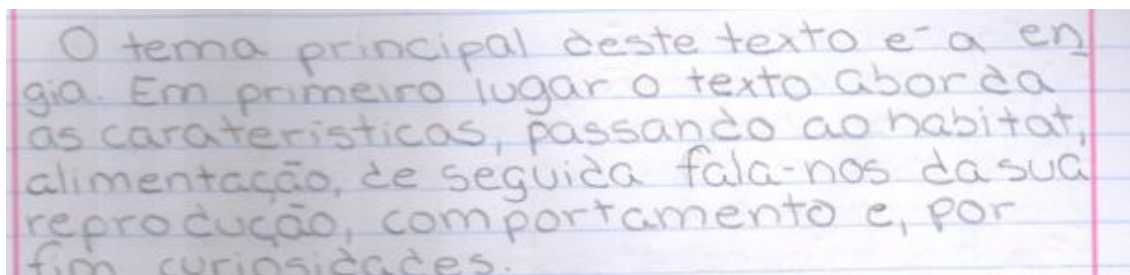 O tema principal deste texto é a en
gia. Em primeiro lugar o texto aborda
as caraterísticas, passando ao habitat,
alimentação, de seguida fala-nos da sua
reprodução, comportamento e, por
fim curiosidades.